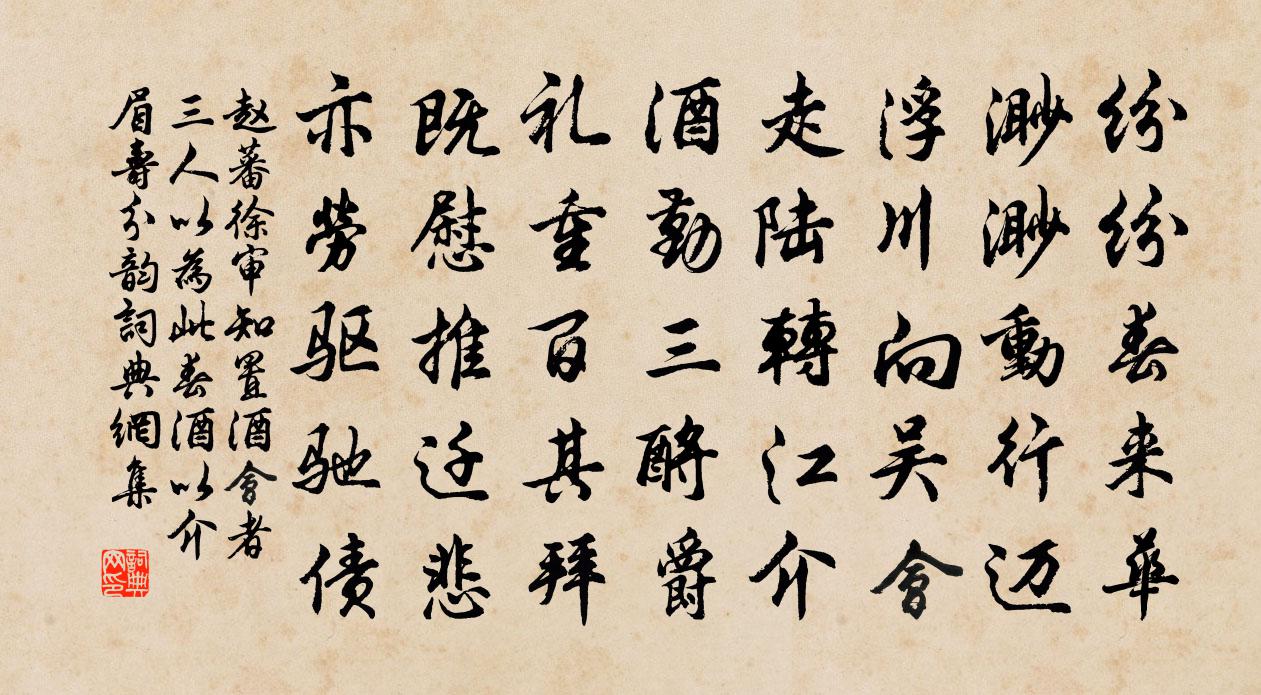 纷纷春来華
渺渺動行迈
浮川向吴會
走陆轉江介
酒勤三酹爵
礼重百其拜
既慰推迁悲
亦劳驱驰债
赵蕃徐审知置酒會者
三人以為此春酒以介
眉壽分韵詞典網集
詞典網印